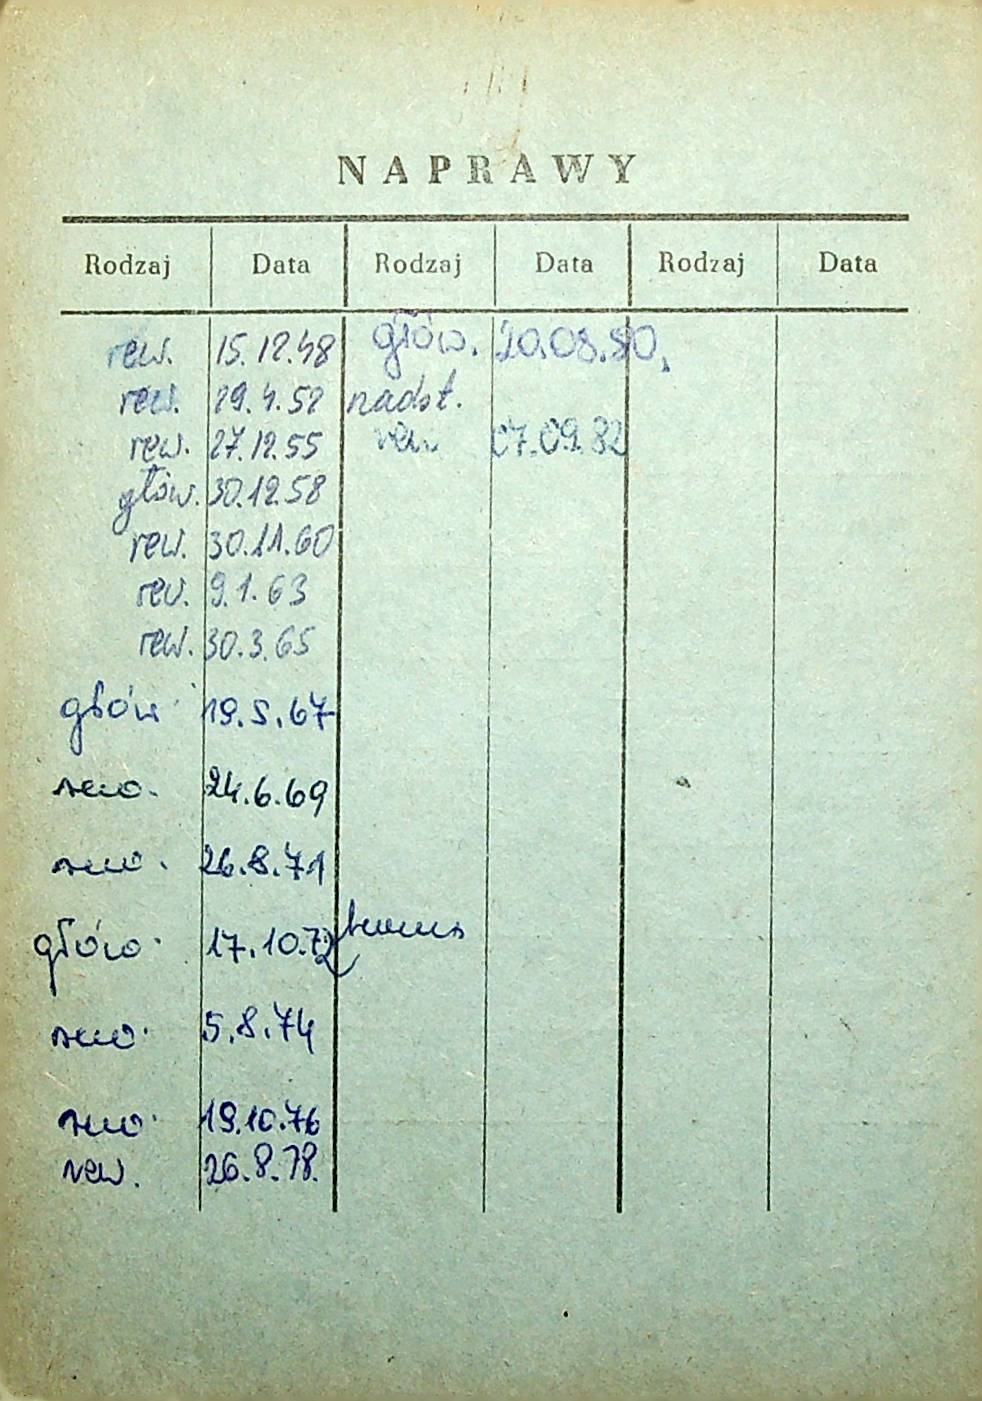 NAPRAWY
Rodzaj Data Rodzaj Data Rodzaj Data
rew. 15.12.48 głów. 20.08.80.
rew. 29.4.52 nadst.
rew. 27.12.55 rew. 07.09.82
głów. 30.12.58
rew. 30.11.60
rew. 9.1.63
rew. 30.3.65
głów 19.5.67
rew. 24.6.69
rew. 26.8.71
głów. 17.10.72
rew. 5.8.74
rew. 19.10.76
rew. 26.8.78.